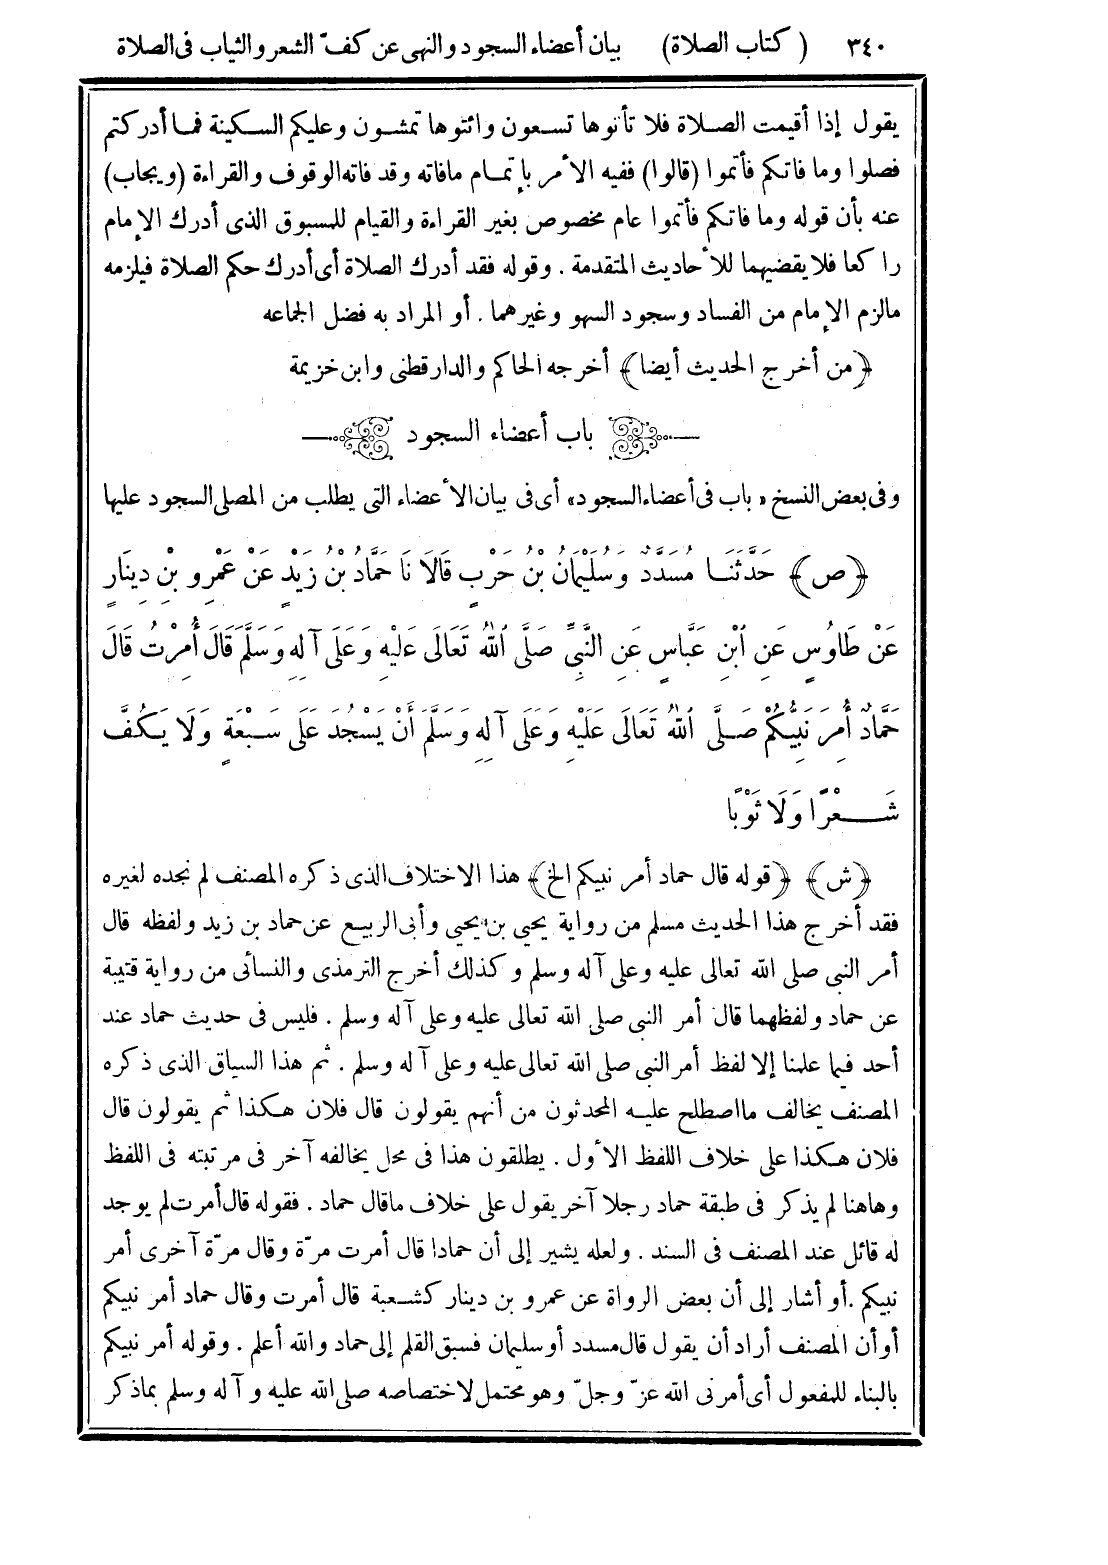 ٣٤٠ ( كتاب الصلاة) بيان أعضاء السجود والنهى عن كفّ الشعر والثياب فى الصلاة
يقول إذا أقيمت الصلاة فلا تأتوها تسعون وائتوها تمشون وعليكم السكينة فما أدركتم
فصلوا وما فاتكم فأتموا (قالوا) ففيه الأمر بإتمام مافاته وقد فاته الوقوف والقراءة (ويجاب)
عنه بأن قوله وما فاتكم فأتموا عام مخصوص بغير القراءة والقيام للمسبوق الذى أدرك الإمام
راكعا فلا يقضيهما للأحاديث المتقدمة . وقوله فقد أدرك الصلاة أى أدرك حكم الصلاة فيلزمه
مالزم الإمام من الفساد وسجود السهو وغيرهما . أو المراد به فضل الجماعه
﴿من أخرج الحديث أيضا﴾ أخرجه الحاكم والدارقطنى وابن خزيمة
باب أعضاء السجود
وفى بعض النسخ «باب فى أعضاء السجود» أى فى بيان الأعضاء التى يطلب من المصلى السجود عليها
﴿ص﴾ حَدَّثَنَا مُسَدَّدٌ وَسُلَيْمَانُ بْنُ حَرْبٍ قَالَا نَا حَمَّادُ بْنُ زَيْدٍ عَنْ عَمْرِو بْنِ دِينَارٍ
عَنْ طَاوُسٍ عَنِ ابْنِ عَبَّاسٍ عَنِ النَّبِىِّ صَلَّى اللهُ تَعَالَى عَلَيْهِ وَعَلَى آلِهِ وَسَلَّمَ قَالَ أُمِرْتُ قَالَ
حَمَّادٌ أُمِرَ نَبِيُّكُمْ صَلَّى اللهُ تَعَالَى عَلَيْهِ وَعَلَى آلِهِ وَسَلَّمَ أَنْ يَسْجُدَ عَلَى سَبْعَةٍ وَلَا يَكُفَّ
شَعْرًا وَلَا ثَوْبًا
﴿ش﴾ ﴿قوله قال حماد أمر نبيكم الخ﴾ هذا الاختلاف الذى ذكره المصنف لم نجده لغيره
فقد أخرج هذا الحديث مسلم من رواية يحيى بن يحيى وأبى الربيع عن حماد بن زيد ولفظه قال
أمر النبى صلى الله تعالى عليه وعلى آله وسلم وكذلك أخرج الترمذى والنسائى من رواية قتيبة
عن حماد ولفظهما قال أمر النبى صلى الله تعالى عليه وعلى آله وسلم . فليس فى حديث حماد عند
أحد فيما علمنا إلا لفظ أمر النبى صلى الله تعالى عليه وعلى آله وسلم . ثم هذا السياق الذى ذكره
المصنف يخالف مااصطلح عليه المحدثون من أنهم يقولون قال فلان هكذا ثم يقولون قال
فلان هكذا على خلاف اللفظ الأول . يطلقون هذا فى محل يخالفه آخر فى مرتبته فى اللفظ
وهاهنا لم يذكر فى طبقة حماد رجلا آخر يقول على خلاف ماقال حماد . فقوله قال أمرت لم يوجد
له قائل عند المصنف فى السند . ولعله يشير إلى أن حمادا قال أمرت مرّة وقال مرّة آخرى أمر
نبيكم .أو أشار إلى أن بعض الرواة عن عمرو بن دينار كشعبة قال أمرت وقال حماد أمر نبيكم
أو أن المصنف أراد أن يقول قال مسدد أو سليمان فسبق القلم إلى حماد والله أعلم . وقوله أمر نبيكم
بالبناء للمفعول أى أمرنى الله عزّ وجلّ وهو محتمل لاختصاصه صلى الله عليه وآله وسلم بماذكر